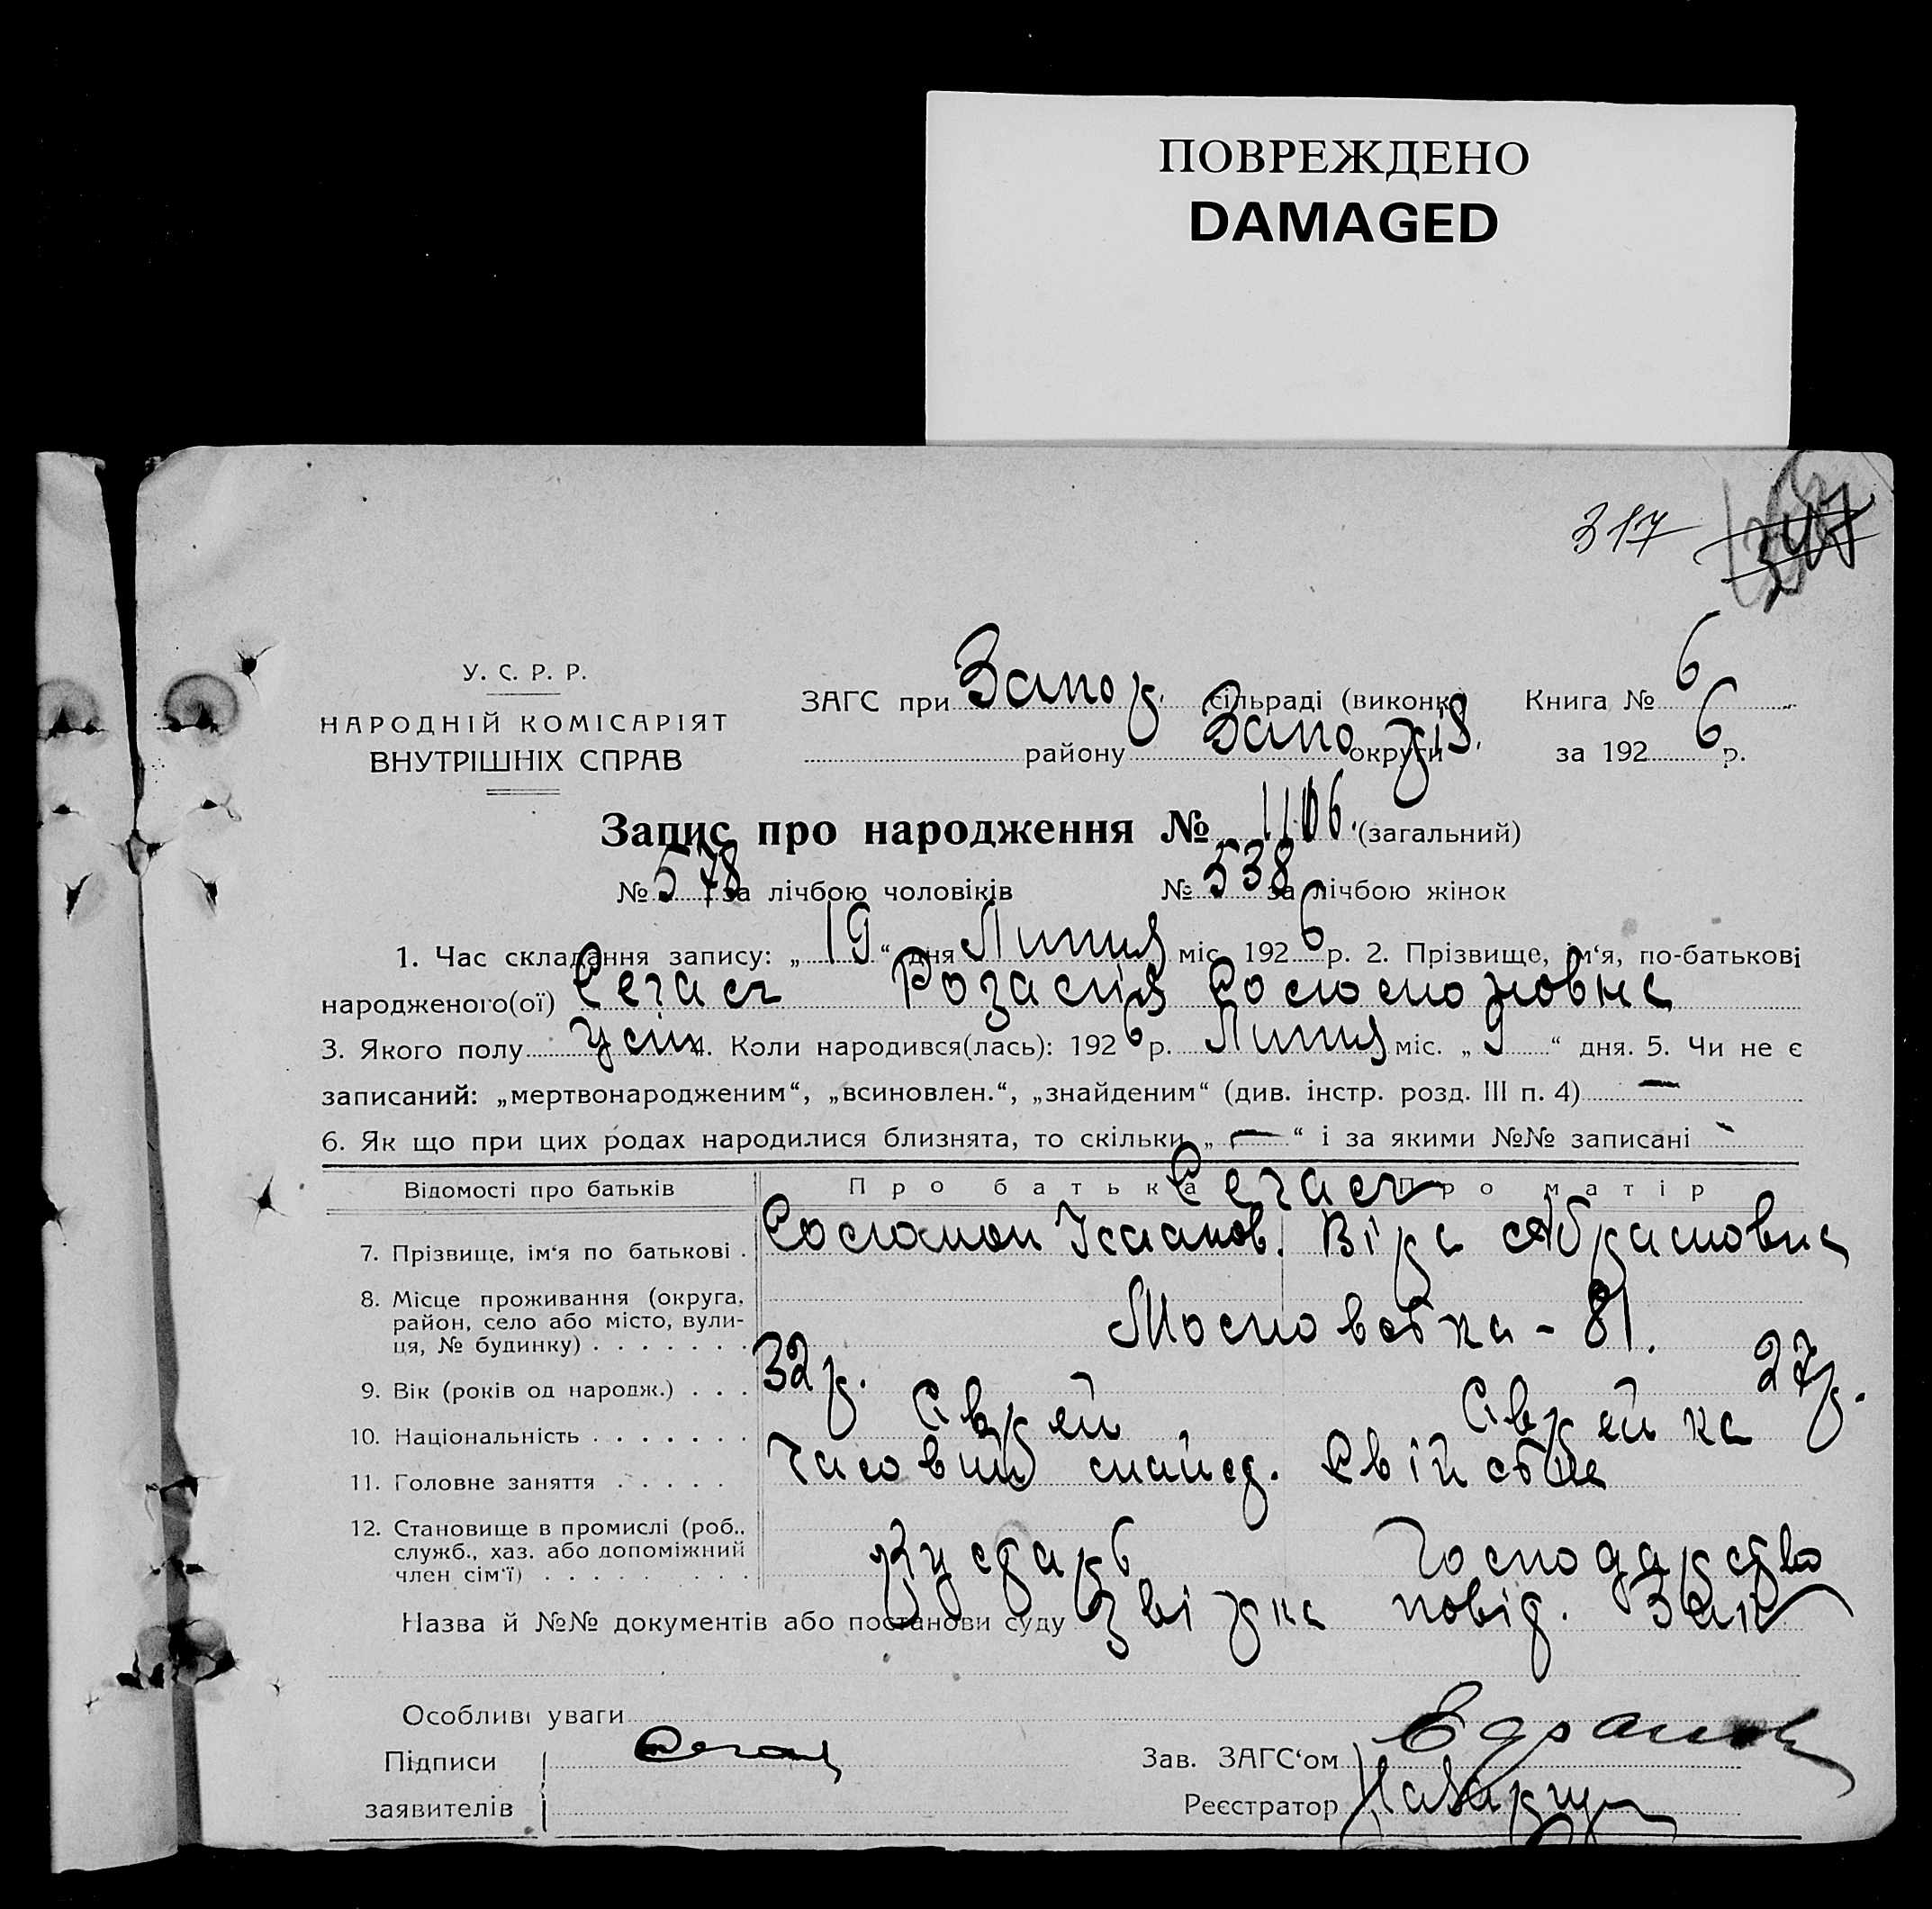 ПОВРЕЖДЕНО
DAMAGED
317
У. С. Р. Р.
НАРОДНІЙ КОМІСАРІЯТ
ВНУТРІШНІХ СПРАВ
ЗАГС при Запор. сільраді (виконк.) Книга № 6
району Запоріз. округи за 1926 р.
Запис про народження № 1106 (загальний)
№ 578 за лічбою чоловіків № 538 за лічбою жінок
1. Час складання запису: „19“ дня Липня міс. 1926 р. 2. Прізвище, ім‘я, по-батькові
народженого(ої) Сегаль Соломоновна
3. Якого полу 4. Коли народився(лась): 1926 р. Липня міс. „9“ дня. 5. Чи не є
записаний: „мертвонародженим“, „всиновлен.“, „знайденим“ (див. інстр. розд. III п. 4) —
6. Як що при цих родах народилися близнята, то скільки „—“ і за якими №№ записані
Відомості про батьків Про батька Про матір
Сегаль
7. Прізвище, ім‘я по батькові . Соломон Ісааков. Віра Абрамовна
8. Місце проживання (округа, район, село або місто, вули-ця, № будинку) . . . . . . . Московська - 81.
9. Вік (років од народж.) . . . 32 р. 27 р.
10. Національність . . . . . . . Єврей Єврейка
11. Головне заняття . . . . . Часовий
12. Становище в промислі (роб., служб., хаз. або допоміжний член сім‘ї) . . . . . . . . . Кустарь Господарство
Назва й №№ документів або постанови суду повід.
Особливі уваги
Підписи
заявителів
Зав. ЗАГС‘ом
Реєстратор